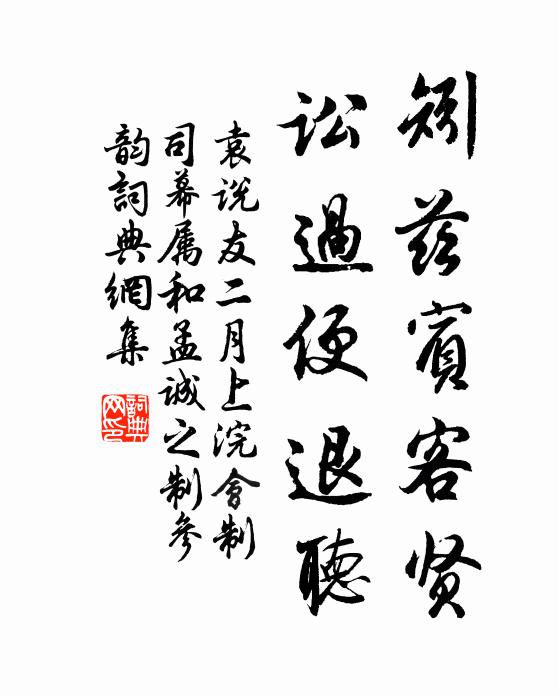 矧兹賓客贤
訟過便退聽
袁说友二月上浣會制
司幕属和孟诚之制參
韵詞典網集
詞典網印